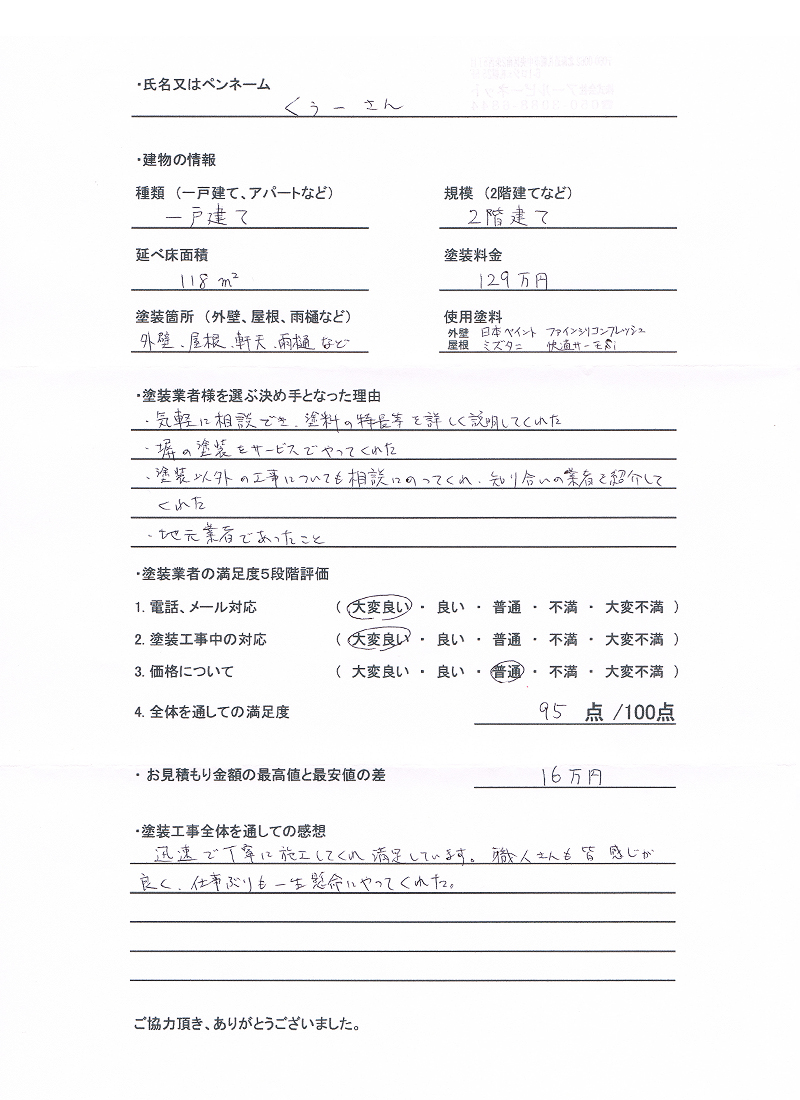 ・氏名又はペンネーム
くぅーさん
・建物の情報
種類（一戸建て、アパートなど） 規模（2階建てなど）
一戸建て 2階建て
延べ床面積 塗装料金
118㎡ 129万円
塗装箇所（外壁、屋根、雨樋など） 使用塗料
外壁、屋根、軒天、雨樋など 外壁 日本ペイント ファインシリコンフレッシュ
屋根 ミズタニ 快適サーモSi
・塗装業者様を選ぶ決め手となった理由
・気軽に相談でき、塗料の特長等を詳しく説明してくれた
・塀の塗装をサービスでやってくれた
・塗装以外の工事についても相談にのってくれ、知り合いの業者を紹介して
くれた
・地元業者であったこと
・塗装業者の満足度5段階評価
1. 電話、メール対応 （ 大変良い ・ 良い ・ 普通 ・ 不満 ・ 大変不満 ）
2. 塗装工事中の対応 （ 大変良い ・ 良い ・ 普通 ・ 不満 ・ 大変不満 ）
3. 価格について （ 大変良い ・ 良い ・ 普通 ・ 不満 ・ 大変不満 ）
4. 全体を通しての満足度 95 点 /100点
・ お見積もり金額の最高値と最安値の差 16万円
・塗装工事全体を通しての感想
迅速で丁寧に施工してくれ満足しています。職人さんも皆感じが
良く、仕事ぶりも一生懸命にやってくれた。
ご協力頂き、ありがとうございました。